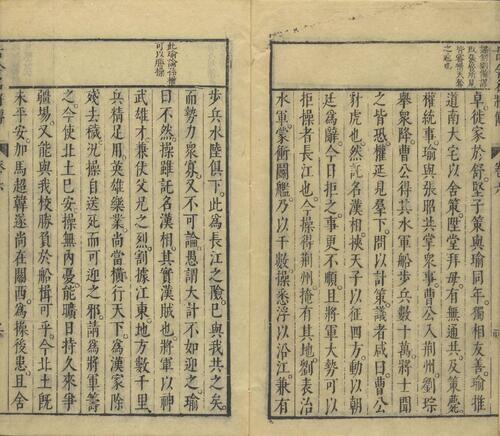 卓徙家於舒堅子策與瑜同年獨相友善瑜推
道南大宅以舍策陞堂拜母有無通共及策薨
權統事瑜與張昭共掌衆事曹公入荆州劉琮
舉衆降曹公得其水軍船步兵數十萬將士聞
之皆恐權延見羣下問以計策議者咸曰曹公
豺虎也然託名漢相挾天子以征四方動以朝
廷爲辭今日拒之事更不順且將軍大勢可以
拒操者長江也今操得荆州掩有其地劉表治
水軍蒙衝鬬艦乃以千數操悉浮以沿江兼有
此瑜論孫權
可以勝操
步兵水陸俱下此爲長江之險已與我共之矣
而勢力衆寡又不可論愚謂大計不如迎之瑜
曰不然操雖託名漢相其實漢賊也將軍以神
武雄才兼仗父兄之烈割據江東地方數千里
兵精足用英雄樂業尚當橫行天下爲漢家除
殘去穢況操自送死而可迎之邪請爲將軍籌
之今使北土已安操無內憂能曠日持久來爭
疆場又能與我校勝負於船楫可乎今北土既
未平安加馬超韓遂尚在關西爲操後患且舍